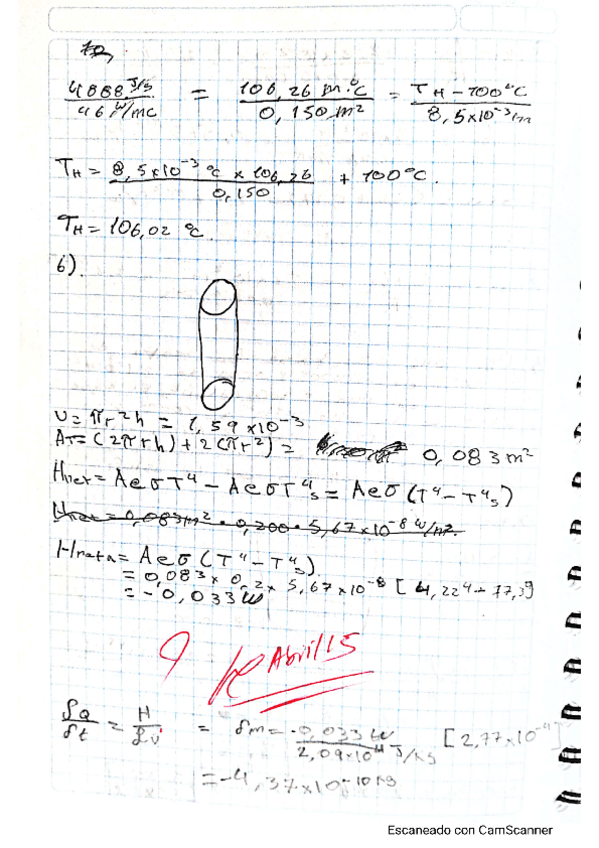 4888 J/s / 46 W/mc = 106,26 m.°C / 0,150 m² = TH - 100°C / 8,5x10⁻³m
TH = 8,5x10⁻³ °c x 106,26 / 0,150 + 100°C.
TH = 106,02 °C.
6).
V = πr²h = 1,59 x10⁻³
AT = (2πrh) + 2(πr²) = 0,083m²
Hnet = AeσT⁴ - AeσT⁴s = Aeσ(T⁴ - T⁴s)
Hnet = 0,083m² · 0,200 · 5,67x10⁻⁸ W/m².
Hneta = Aeσ(T⁴ - T⁴s)
= 0,083 x 0,2 x 5,67x10⁻⁸ [4,22⁴ - 77,3⁴]
= -0,033W
Abril 15
H / Lv = = -0,033 W / 2,09x10⁴ J/Kg [2,77x10⁻⁴]
= -4,37x10⁻¹⁰ Kg
Escaneado con CamScanner